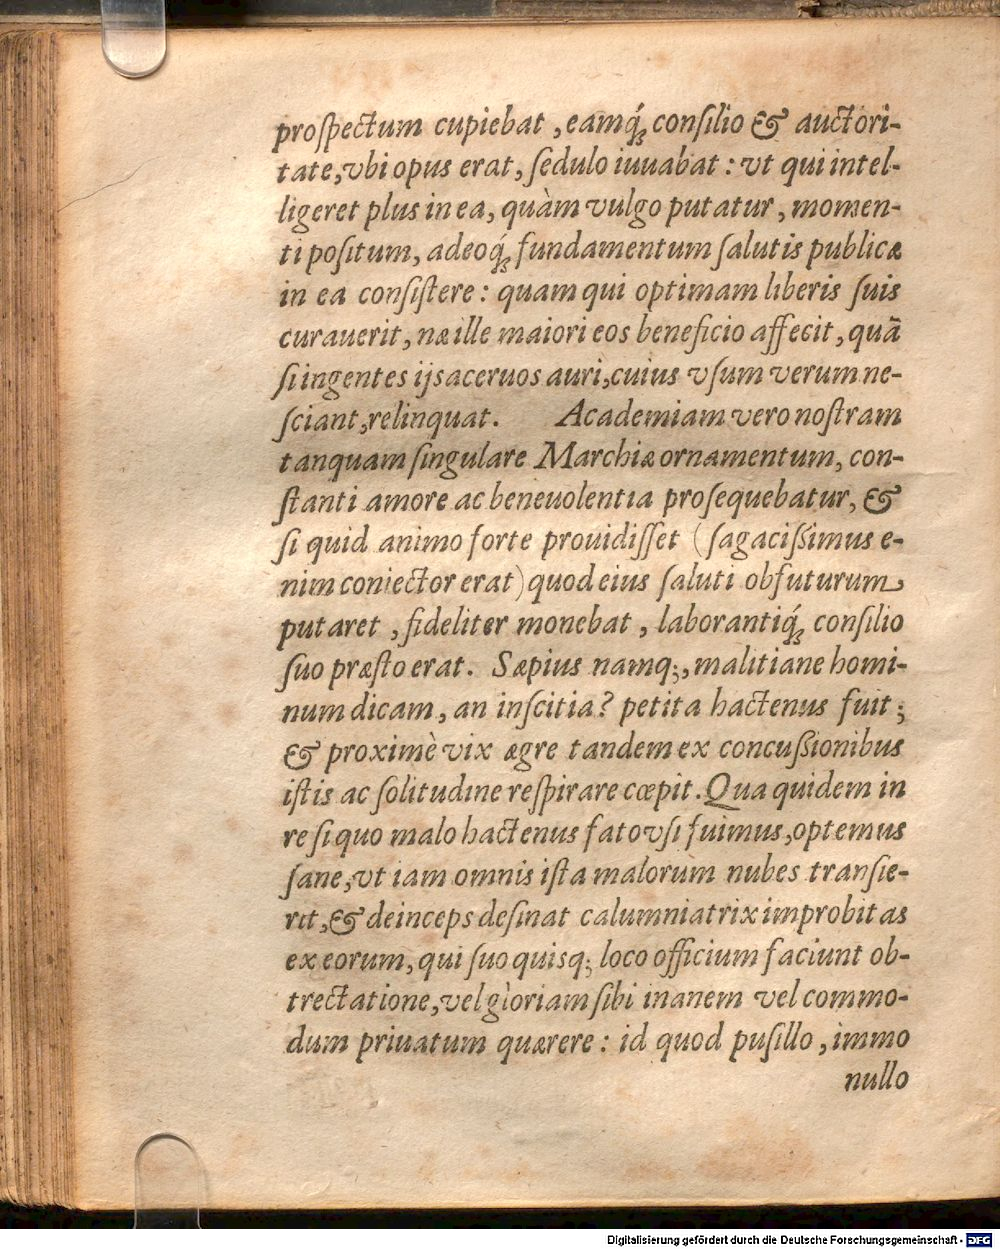 proſpectum cupiebat, eamq́; conſilio & auctori-
tate, vbi opus erat, ſedulo iuuabat: vt qui intel-
ligeret plus in ea, quàm vulgo putatur, momen-
ti poſitum, adeoq́; fundamentum ſalutis publicæ
in ea conſiſtere: quam qui optimam liberis ſuis
curauerit, næ ille maiori eos beneficio affecit, quā
ſi ingentes ijs aceruos auri, cuius vſum verum ne-
ſciant, relinquat. Academiam vero noſtram
tanquam ſingulare Marchiæ ornamentum, con-
ſtanti amore ac beneuolentia proſequebatur, &
ſi quid animo forte prouidiſſet (ſagaciſsimus e-
nim coniector erat) quod eius ſaluti obfuturum
putaret, fideliter monebat, laborantiq́; conſilio
ſuo præſto erat. Sæpius namq;, malitiane homi-
num dicam, an inſcitia? petita hactenus fuit;
& proximè vix ægre tandem ex concuſsionibus
iſtis ac ſolitudine reſpirare cœpit. Qua quidem in
re ſi quo malo hactenus fato vſi fuimus, optemus
ſane, vt iam omnis iſta malorum nubes tranſie-
rit, & deinceps deſinat calumniatrix improbitas
ex eorum, qui ſuo quisq; loco officium faciunt ob-
trectatione, vel gloriam ſibi inanem vel commo-
dum priuatum quærere: id quod puſillo, immo
nullo
Digitalisierung gefördert durch die Deutsche Forschungsgemeinschaft - DFG